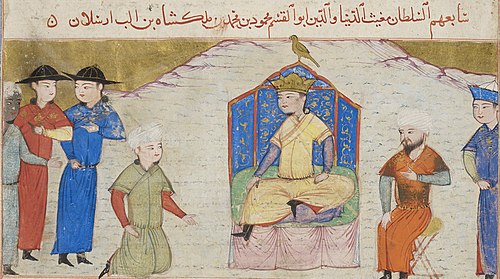 سابعهم السلطان مغيث الدنيا والدين ابو القسم محمود بن محمد بن ملكشاه بن الب ارسلان